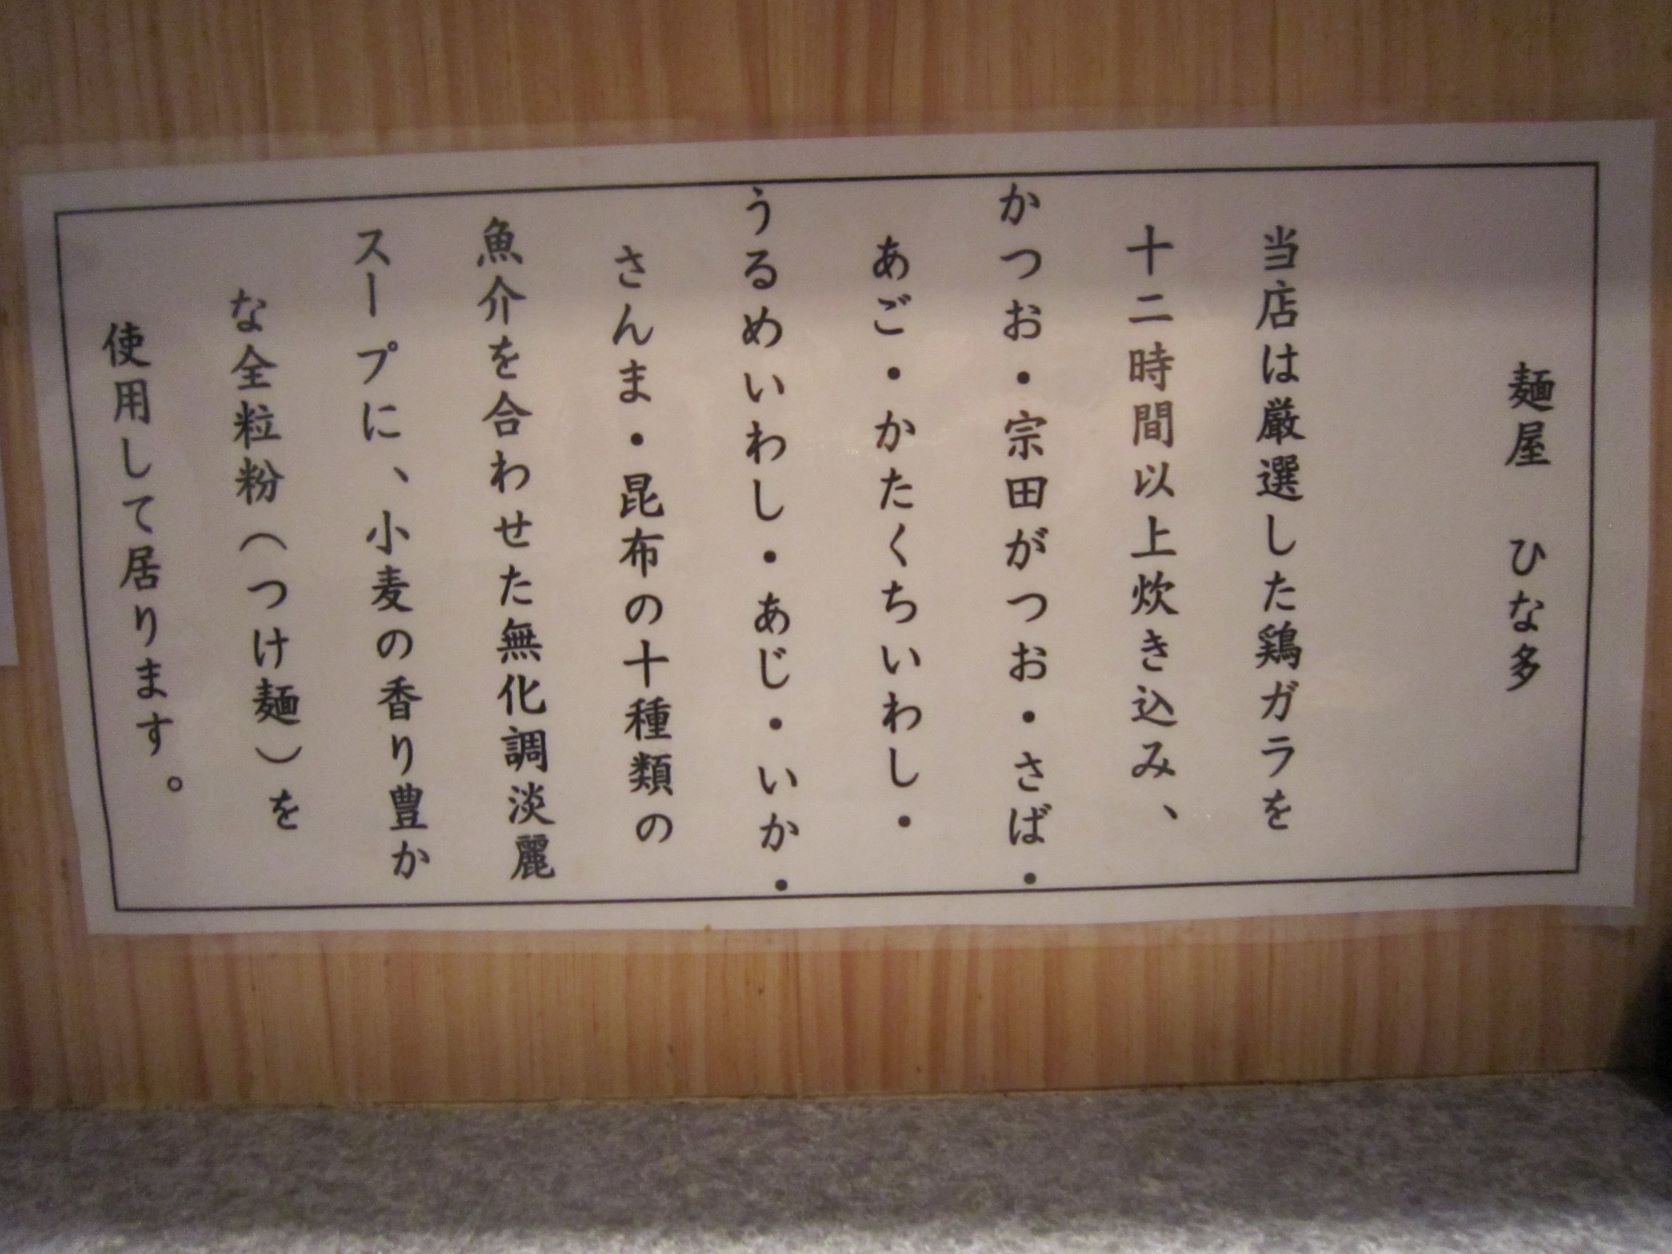 麺屋　ひな多
当店は厳選した鶏ガラを
十二時間以上炊き込み、
かつお・宗田がつお・さば・
あご・かたくちいわし・
うるめいわし・あじ・いか・
さんま・昆布の十種類の
魚介を合わせた無化調淡麗
スープに、小麦の香り豊か
な全粒粉（つけ麺）を
使用して居ります。